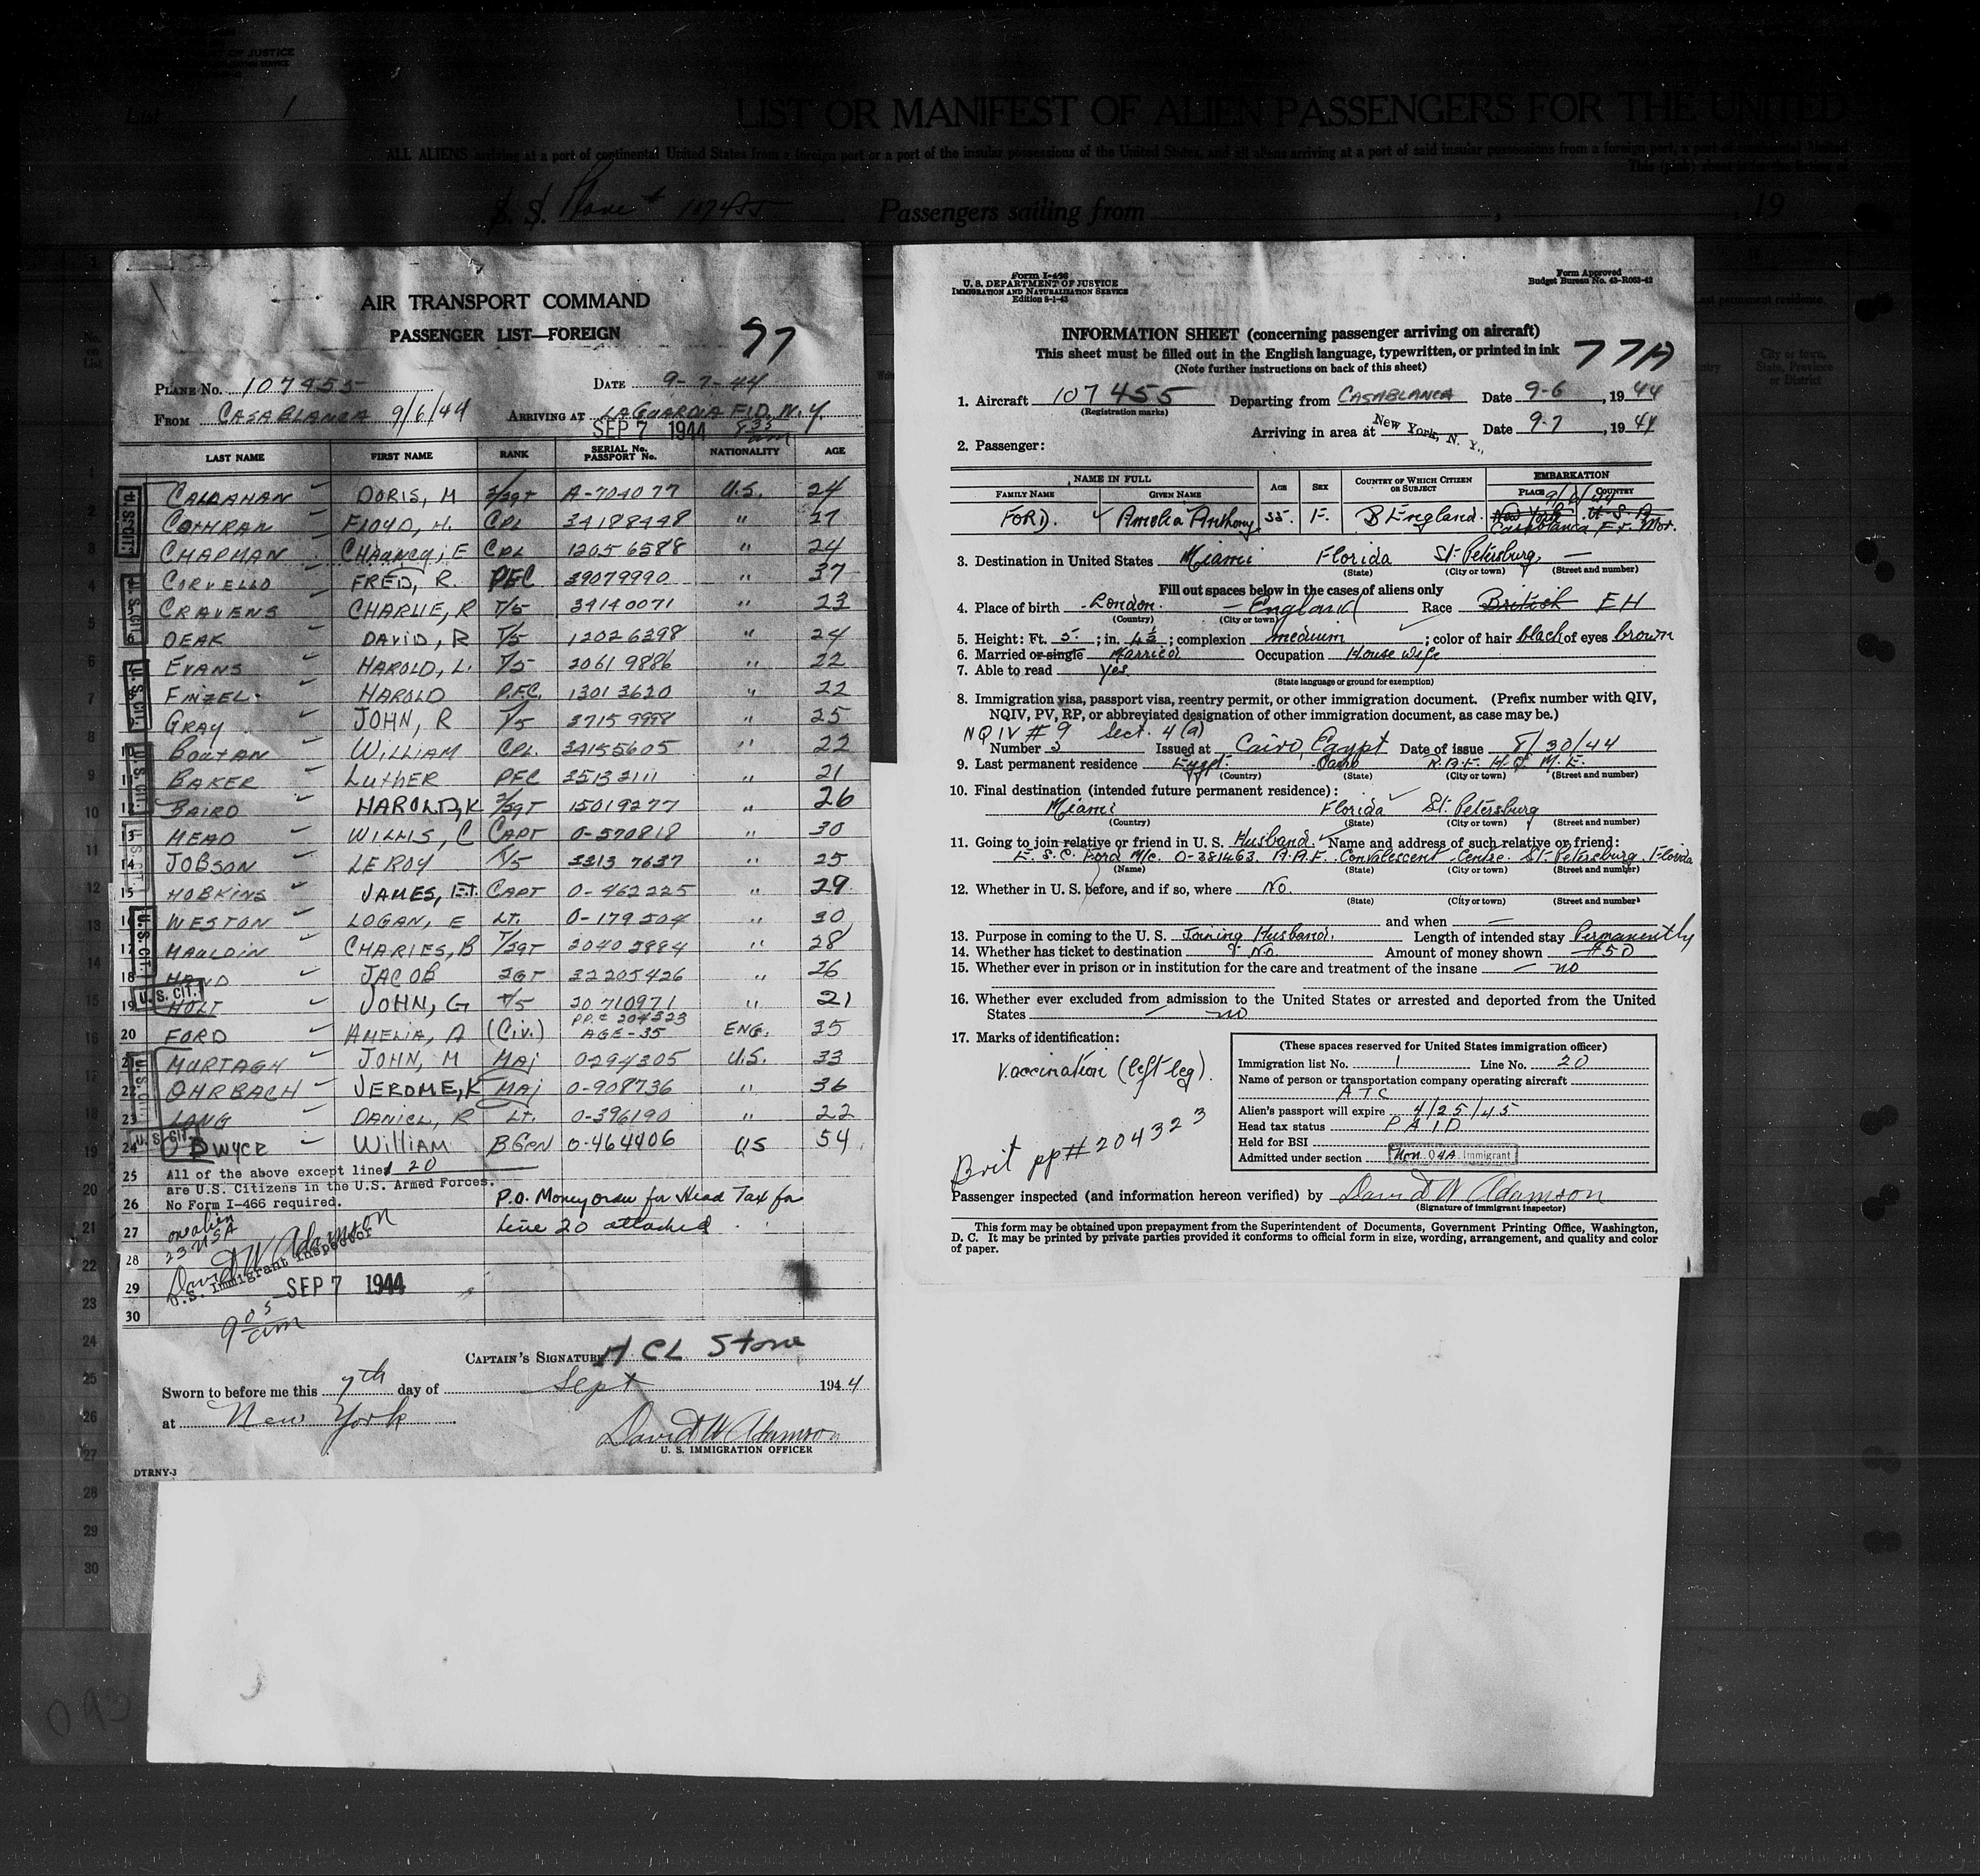 LIST OR MANIFEST OF ALIEN PASSENGERS FOR THE UNITED
List 1
ALL ALIENS arriving at a port of continental United States from a foreign port or a port of the insular possessions of the United States, and all aliens arriving at a port of said insular possessions from a foreign port, a port of continental United
S. S. Plane # 107455 Passengers sailing from , 19
AIR TRANSPORT COMMAND
PASSENGER LIST—FOREIGN
77
PLANE No. 107455 DATE 9-7-44
FROM CASABLANCA 9/6/44 ARRIVING AT LAGUARDIA FLD. N.Y.
SEP 7 1944 8 35 am
LAST NAME FIRST NAME RANK SERIAL No. PASSPORT No. NATIONALITY AGE
CALLAHAN DORIS, M S/SGT A-704077 U.S. 24
COTHRAN FLOYD, H. CPL 34188448 " 27
CHAPMAN CHAUNCY, E CPL 12056588 " 24
CORVELLO FRED, R. PFC 39079990 " 37
CRAVENS CHARLIE, R T/5 34140071 " 23
DEAK DAVID, R T/5 12026398 " 24
EVANS HAROLD, L. T/5 20619886 " 22
FINZEL HAROLD P.F.C. 13013620 " 22
GRAY JOHN, R T/5 37159998 " 25
10 BOUTAN WILLIAM CPL. 34155605 " 22
11 BAKER LUTHER PFC 35132111 " 21
12 BAIRD HAROLD, K S/SGT 15019277 " 26
13 HEAD WILLIS, C CAPT O-570818 " 30
14 JOBSON LEROY T/5 3313 7637 " 25
15 HOBKINS JAMES, E.T. CAPT O-462225 " 29
16 WESTON LOGAN, E LT. O-179504 " 30
17 MAULDIN CHARLES, B T/SGT 20402884 " 28
18 HAND JACOB SGT 32205426 " 26
19 HOLT JOHN, G T/5 20710971 " 21
20 FORD AMELIA, A (Civ.) PP.# 204323 AGE-35 ENG. 35
21 MURTAGH JOHN, M MAJ 0294305 U.S. 33
22 OHRBACH JEROME, K MAJ O-908736 " 36
23 LONG DANIEL, R LT. O-396190 " 22
24 O'DWYER WILLIAM B GEN O-464406 US 54
U. S. CIT.
25 All of the above except line 20
are U.S. Citizens in the U.S. Armed Forces.
26 No Form I-466 required.
P.O. Money order for Head Tax for
line 20 attached
27 one alien
23 USA
28 David W Adamson
U.S. Immigrant Inspector
29 SEP 7 1944
30 9 05 am
CAPTAIN'S SIGNATURE H CL Stone
Sworn to before me this 7th day of Sept 1944
at New York
David W Adamson
U. S. IMMIGRATION OFFICER
DTRNY-3
Form I-466
U. S. DEPARTMENT OF JUSTICE
IMMIGRATION AND NATURALIZATION SERVICE
Edition 8-1-43
Form Approved
Budget Bureau No. 43-R063-42
INFORMATION SHEET (concerning passenger arriving on aircraft)
This sheet must be filled out in the English language, typewritten, or printed in ink
77A
(Note further instructions on back of this sheet)
1. Aircraft 107455 Departing from CASABLANCA Date 9-6, 1944
(Registration marks)
Arriving in area at New York, N. Y., Date 9-7, 1944
2. Passenger:
NAME IN FULL AGE SEX COUNTRY OF WHICH CITIZEN OR SUBJECT EMBARKATION
FAMILY NAME GIVEN NAME PLACE COUNTRY
9/6/44
FORD. Amelia Anthony. 35. F. B England. New York U.S.A.
Casablanca Fr. Mor.
3. Destination in United States Miami Florida St. Petersburg. —
(State) (City or town) (Street and number)
Fill out spaces below in the cases of aliens only
4. Place of birth London. — England Race British EH
(Country) (City or town)
5. Height: Ft. 5; in. 4½; complexion medium; color of hair black of eyes brown
6. Married or single Married Occupation House wife
7. Able to read Yes.
(State language or ground for exemption)
8. Immigration visa, passport visa, reentry permit, or other immigration document. (Prefix number with QIV,
NQIV, PV, RP, or abbreviated designation of other immigration document, as case may be.)
NQIV # 9 Sect. 4(a)
Number Issued at Cairo, Egypt Date of issue 8/30/44
9. Last permanent residence Egypt. Cairo R.A.F. H.Q M.E.
(Country) (State) (City or town) (Street and number)
10. Final destination (intended future permanent residence):
Miami Florida St. Petersburg
(Country) (State) (City or town) (Street and number)
11. Going to join relative or friend in U. S. Husband. Name and address of such relative or friend:
E. S. C. Ford M/c. O-381463 A.A.F. Convalescent Centre. St. Petersburg. Florida
(Name) (State) (City or town) (Street and number)
12. Whether in U. S. before, and if so, where No.
(State) (City or town) (Street and number)
and when —
13. Purpose in coming to the U. S. Joining Husband. Length of intended stay Permanently
14. Whether has ticket to destination No. Amount of money shown $50
15. Whether ever in prison or in institution for the care and treatment of the insane — no
16. Whether ever excluded from admission to the United States or arrested and deported from the United
States — no
17. Marks of identification:
Vaccination (left leg).
Brit pp# 204323
(These spaces reserved for United States immigration officer)
Immigration list No. 1 Line No. 20
Name of person or transportation company operating aircraft
ATC
Alien's passport will expire 4/25/45
Head tax status PAID
Held for BSI
Admitted under section Non. Q 4A Immigrant
Passenger inspected (and information hereon verified) by David W Adamson
(Signature of immigrant inspector)
This form may be obtained upon prepayment from the Superintendent of Documents, Government Printing Office, Washington,
D. C. It may be printed by private parties provided it conforms to official form in size, wording, arrangement, and quality and color
of paper.